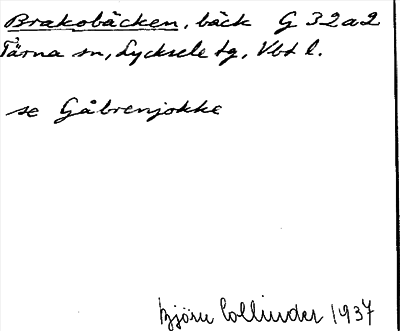 Brakobäcken, bäck G 32a2
Tärna sn, Lycksele lg, Vbt l.
se Gåbrenjokke
Björn Collinder 1937